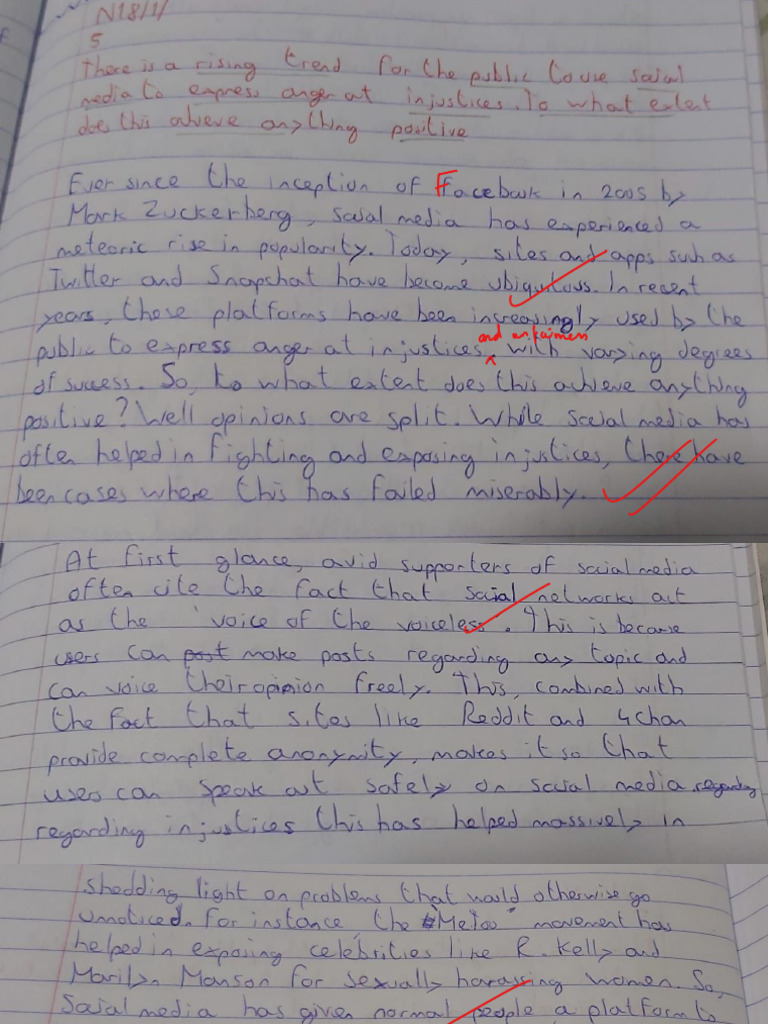 N18/1/
5
There is a rising trend for the public to use social
media to express anger at injustices. To what extent
does this achieve anything positive
Ever since the inception of Facebook in 2005 by
Mark Zuckerberg, social media has experienced a
meteoric rise in popularity. Today, sites and apps such as
Twitter and Snapchat have become ubiquitous. In recent
years, these platforms have been increasingly used by the
and
public to express anger at injustices, with varying degrees
of success. So, to what extent does this achieve anything
positive? Well opinions are split. While social media has
often helped in fighting and exposing injustices, there have
been cases where this has failed miserably.
At first glance, avid supporters of social media
often cite the fact that social networks act
as the 'voice of the voiceless. This is because
users can post make posts regarding any topic and
can voice their opinion freely. This, combined with
the fact that sites like Reddit and 4chan
provide complete anonymity, makes it so that
users can speak out safely on social media regarding
regarding injustices this has helped massively in
shedding light on problems that would otherwise go
unnoticed. For instance, the #Metoo" movement has
helped in exposing celebrities like R. Kelly and
Marilyn Manson for sexually harassing women. So,
Social media has given normal people a platform to